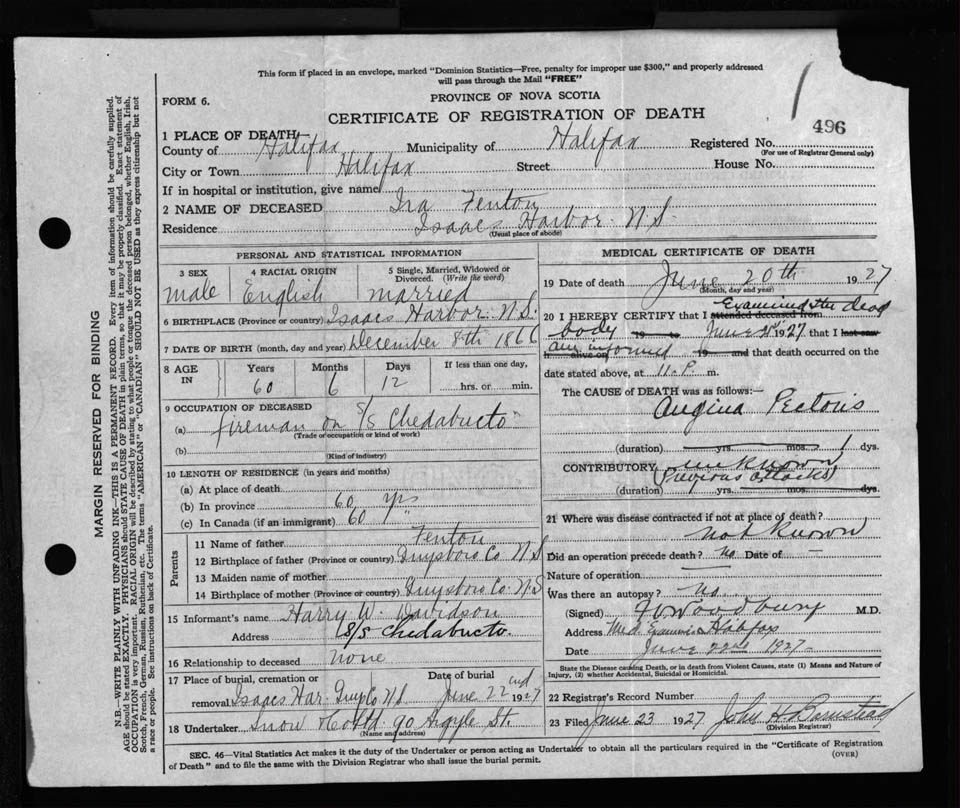 This form if placed in an envelope, marked "Dominion Statistics—Free, penalty for improper use $300," and properly addressed
will pass through the Mail "FREE"
FORM 6.
PROVINCE OF NOVA SCOTIA
CERTIFICATE OF REGISTRATION OF DEATH
496
1 PLACE OF DEATH
County of Halifax Municipality of Halifax Registered No.
(For use of Registrar General only)
City or Town Halifax Street House No.
If in hospital or institution, give name
2 NAME OF DECEASED Ira Fenton
Residence Isaacs Harbor N.S.
(Usual place of abode)
PERSONAL AND STATISTICAL INFORMATION
3 SEX 4 RACIAL ORIGIN 5 Single, Married, Widowed or Divorced. (Write the word)
male English married
6 BIRTHPLACE (Province or country) Isaacs Harbor N.S.
7 DATE OF BIRTH (month, day and year) December 8th 1866
8 AGE IN Years Months Days If less than one day,
60 6 12 hrs. or min.
9 OCCUPATION OF DECEASED
(a) fireman on S/S Chedabucto"
(Trade or occupation or kind of work)
(b)
(Kind of industry)
10 LENGTH OF RESIDENCE (in years and months)
(a) At place of death
(b) In province 60 yrs
(c) In Canada (if an immigrant) 60 "
Parents
11 Name of father Fenton
12 Birthplace of father (Province or country) Guysboro Co N.S
13 Maiden name of mother
14 Birthplace of mother (Province or country) Guysboro Co. N.S
15 Informant's name Harry W. Davidson
Address S/S Chedabucto.
16 Relationship to deceased none
17 Place of burial, cremation or removal Date of burial
Isaacs Har. Guy Co N.S June 22nd 1927
18 Undertaker Snow & Co Ltd 90 Argyle St.
(Name and address)
MEDICAL CERTIFICATE OF DEATH
19 Date of death June 20th 1927
(Month, day and year)
20 I HEREBY CERTIFY that I attended deceased from Examined the dead
body 19 to June 21st 1927 that I last saw
am informed
h alive on 19 and that death occurred on the
date stated above, at 11 P. m.
The CAUSE OF DEATH was as follows:—
Angina Pectoris
(duration) yrs. mos. 1 dys.
CONTRIBUTORY unknown
(Previous attacks)
(duration) yrs. mos. dys.
21 Where was disease contracted if not at place of death?
not known
Did an operation precede death? no Date of —
Nature of operation —
Was there an autopsy? no.
(Signed) Woodbury M.D.
Address Med. Examiner Halifax
Date June 22nd 1927
State the Disease causing Death, or in death from Violent Causes, state (1) Means and Nature of
Injury, (2) whether Accidental, Suicidal or Homicidal.
22 Registrar's Record Number
23 Filed June 23 1927 John H.
(Division Registrar)
SEC. 46—Vital Statistics Act makes it the duty of the Undertaker or person acting as Undertaker to obtain all the particulars required in the "Certificate of Registration
of Death" and to file the same with the Division Registrar who shall issue the burial permit.
(OVER)
MARGIN RESERVED FOR BINDING
N.B.—WRITE PLAINLY, WITH UNFADING INK—THIS IS A PERMANENT RECORD. Every item of information should be carefully supplied.
AGE should be stated EXACTLY. PHYSICIANS should STATE CAUSE OF DEATH in plain terms, so that it may be properly classified. Exact statement of
OCCUPATION is very important. RACIAL ORIGIN will be described by stating to what people or tongue the deceased person belonged, whether English, Irish,
Scotch, French, German, Russian, Ruthenian, etc. The terms "AMERICAN" or "CANADIAN" SHOULD NOT BE USED as they express citizenship but not
a race or people. See instructions on back of Certificate.